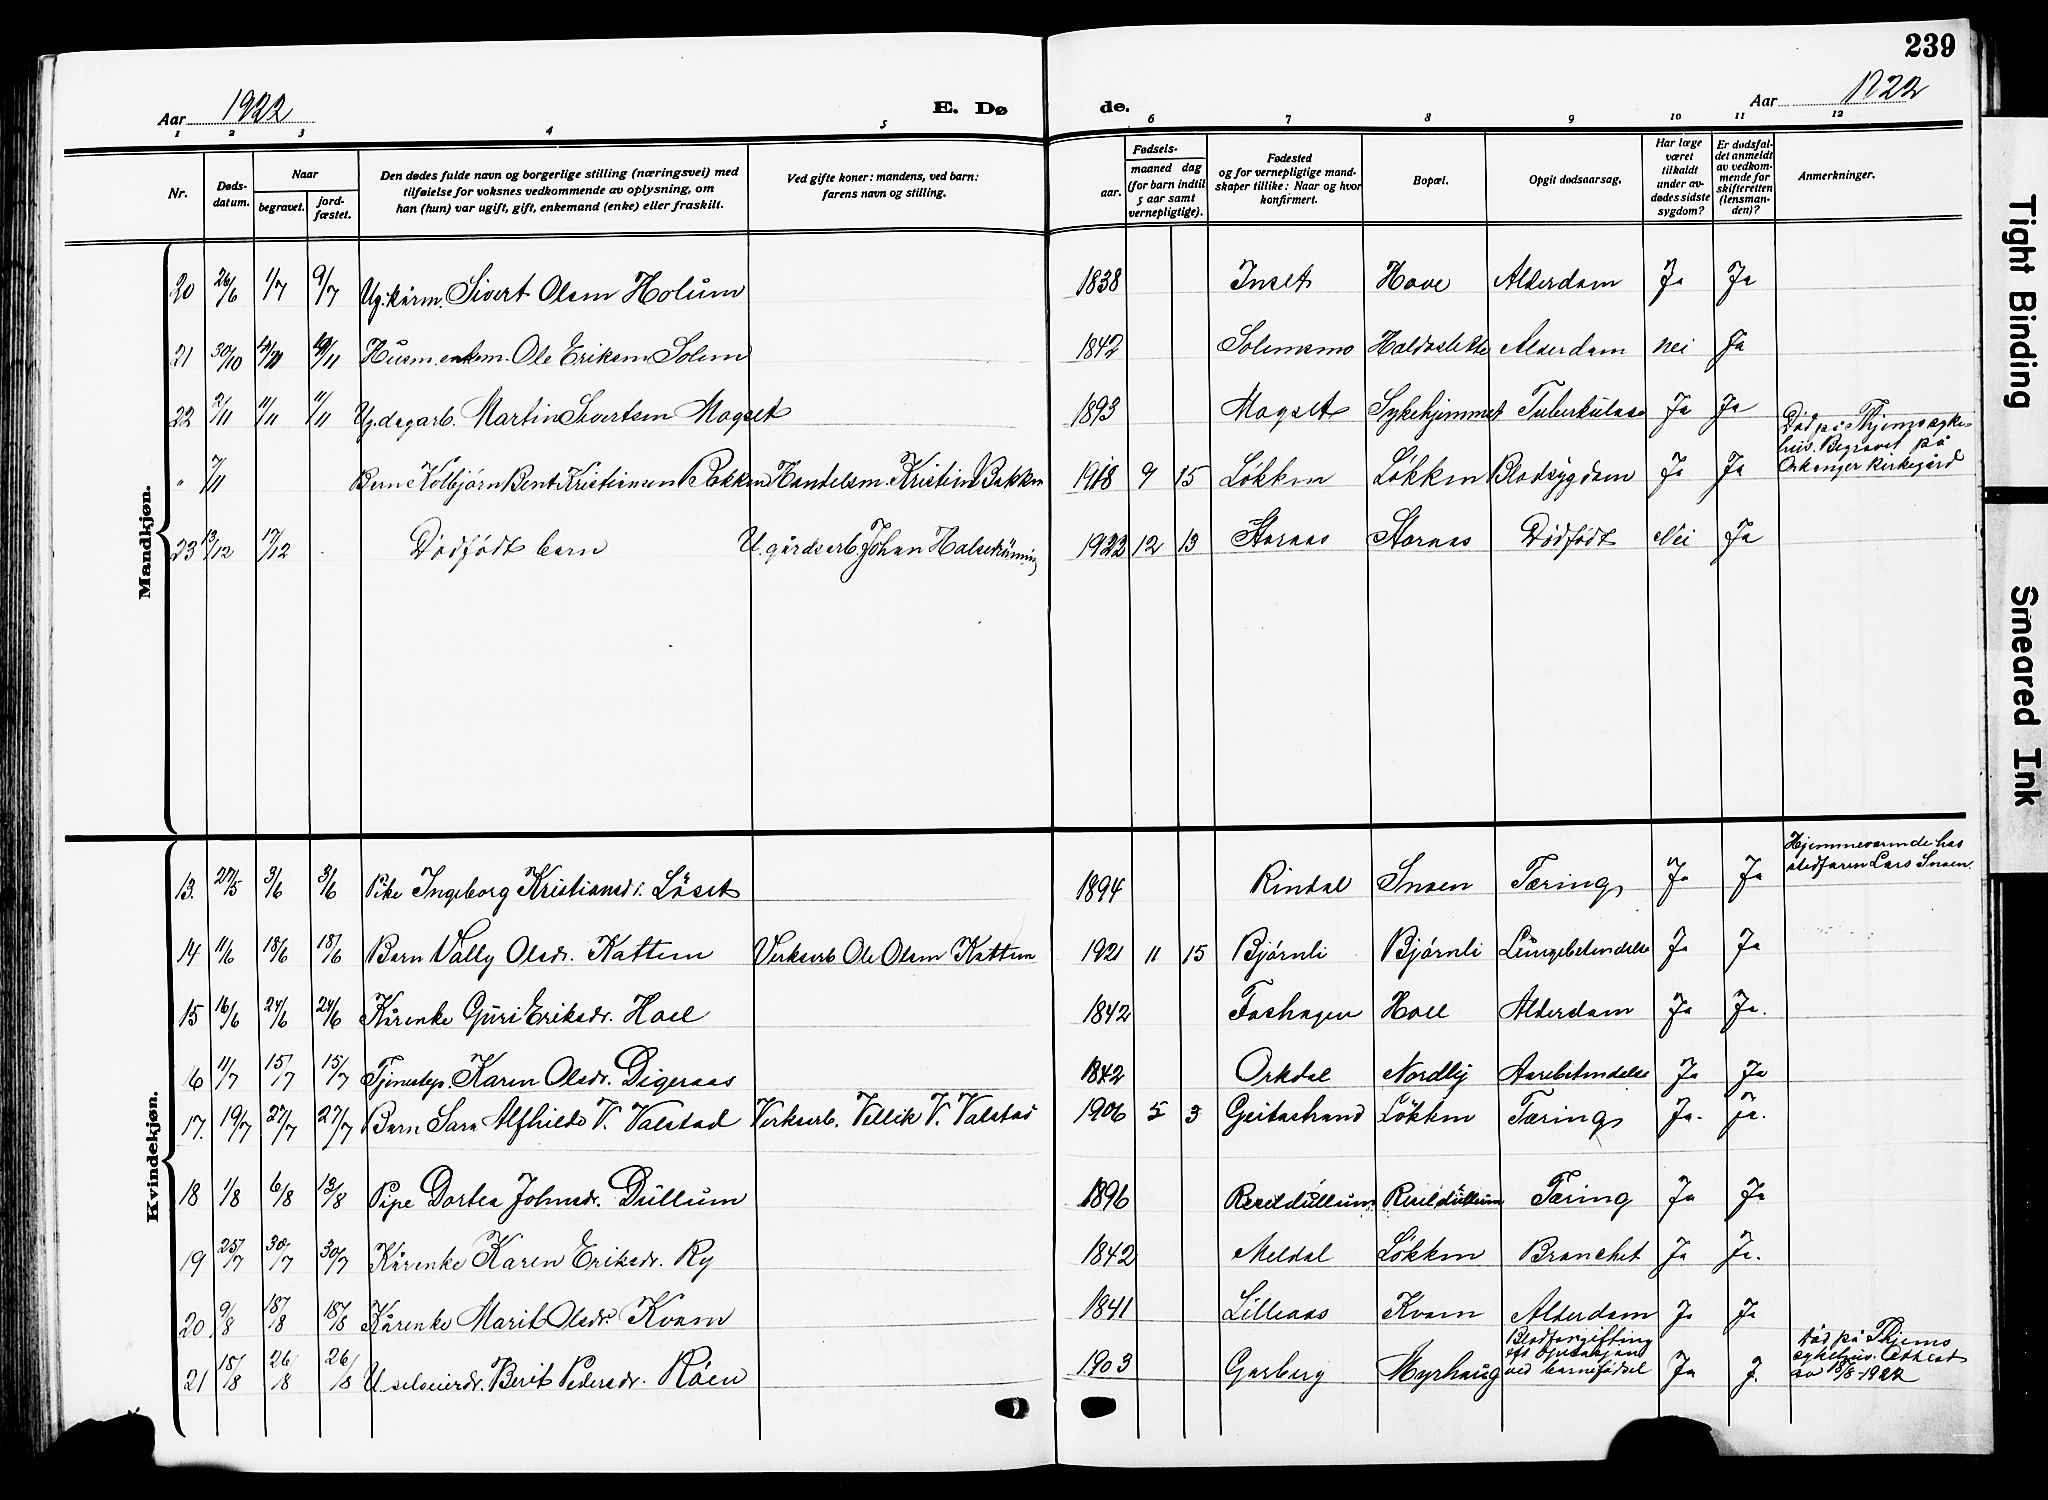 239
Aar 1922 E. Dø de. Aar 1922
1 2 3 4 5 6 7 8 9 10 11 12
Nr. Døds-datum. Naar begravet. jord-fæstet. Den dødes fulde navn og borgerlige stilling (næringsvei) med tilføielse for voksnes vedkommende av oplysning, om han (hun) var ugift, gift, enkemand (enke) eller fraskilt. Ved gifte koner: mandens, ved barn: farens navn og stilling. Fødsels- aar. maaned dag (for barn indtil 5 aar samt vernepligtige). Fødested og for vernepligtige mand-skaper tillike: Naar og hvor konfirmert. Bopæl. Opgit dødsaarsag. Har læge været tilkaldt under av-dødes sidste sygdom? Er dødsfal-det anmeldt av vedkom-mende for skifteretten (lensman-den)? Anmerkninger.
Mandkjøn.
20 26/6 1/7 9/7 Ug. kårm. Sivert Olsen Holum 1838 Inset Hove Alderdom Ja Ja
21 30/10 11 19/11 Husm. enkem. Ole Eriksen Solem 1842 Solemsmo Haldosletten Alderdom Nei Ja
22 2/11 11/11 11/11 Ug. dagarb. Martin Sivertsen Mogset 1893 Mogset Sykehjemmet Tuberkulose Ja Ja
" 7/11 Barn Kolbjörn Bent Kristiansen Bakken Handelsm. Kristian Bakken 1918 9 15 Løkken Løkken Blodsygdom Ja Ja Död på Thjems syke-hus. Begravet på Orkanger kirkegård
23 13/12 17/12 Dödfödt barn U. gårdsarb. Johan Halsetrönning 1922 12 13 Storaas Storaas Dödfödt Nei Ja
Kvindekjøn.
13. 27/5 3/6 3/6 Pike Ingeborg Kristiansd. Löset 1894 Rindal Snoen Tæring Ja Ja Hjemmeværende hos stedfaren Lars Snoen.
14 11/6 18/6 18/6 Barn Vally Olsdr. Kattem Verksarb. Ole Olsen Kattem 1921 11 15 Bjørnli Bjørnli Lungebetændelse Ja Ja
15 16/6 24/6 24/6 Kårenke Guri Eriksdr. Hoel 1842 Foshagen Hoel Alderdom Ja Ja.
16 11/7 15/7 15/7 Tjenestep. Karen Olsdr. Digeraas 1842 Orkdal Nordby Aarebetændelse Ja Ja
17. 19/7 27/7 27/7 Barn Sara Alfhilde V. Valstad Verksarb. Vellik V. Valstad 1906 5 3 Geitastrand Løkken Tæring Ja. Ja.
18 1/8 6/8 13/8 Pipe Dortea Johnsdr. Dullum 1896 Resseldullum Resseldullum Tæring Ja Ja
19 25/7 30/7 30/7 Kårenke Karen Eriksdr. Ry 1842 Meldal Løkken Bronchet Ja Ja.
20 9/8 18/8 18/8 Kårenke Marit Olsdr. Kvam 1841 Lilleaas Kvam Alderdom Ja Ja
21 18/8 26/8 26/8 U. selveierdr. Berit Pedersdr. Röen 1903 Garberg Myrhaug Blodforgiftning ved barnefödsel Ja J. Död på Thjems sykehus. Attest av 18/8-1922
Tight Binding
Smeared Ink